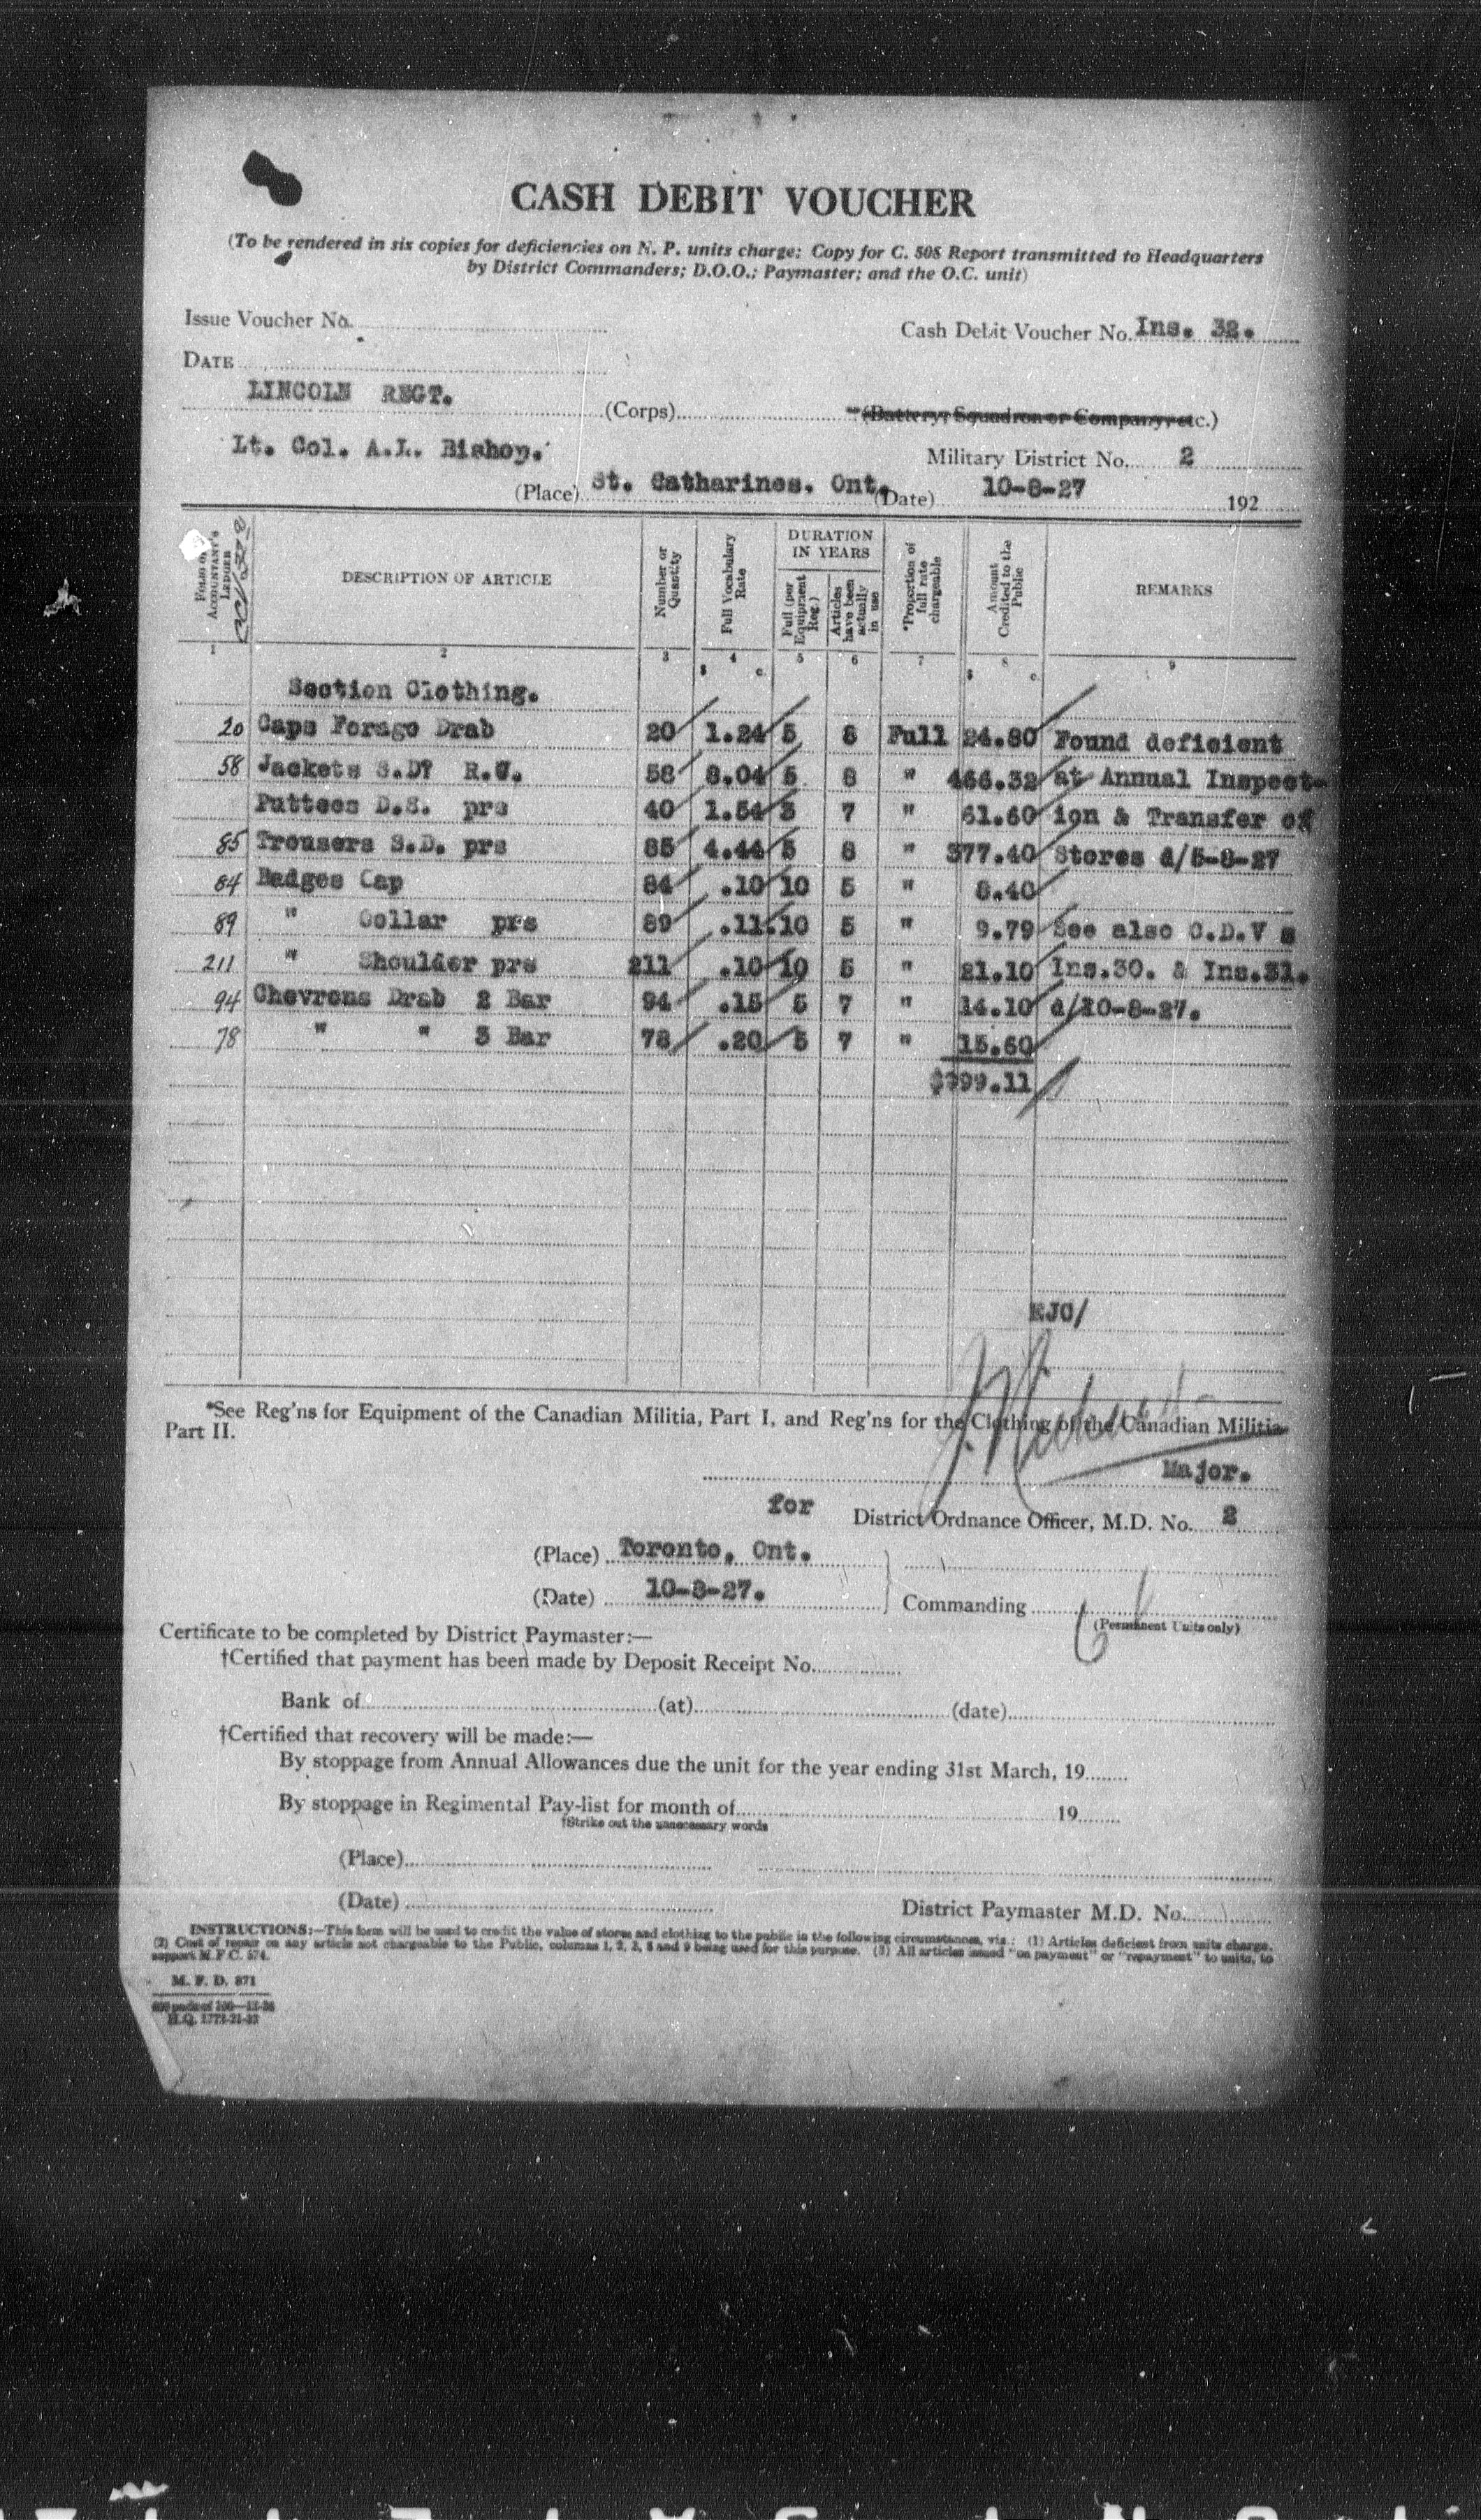 CASH DEBIT VOUCHER
(To be rendered in six copies for deficiencies on N. P. units charge: Copy for C. 508 Report transmitted to Headquarters
by District Commanders; D.O.O.; Paymaster; and the O.C. unit)
Issue Voucher No.
Cash Debit Voucher No. Ins. 32.
DATE
LINCOLN REGT. (Corps) (Battery, Squadron or Company, etc.)
Lt. Col. A.L. Bishop. Military District No. 2
(Place) St. Catharines. Ont. (Date) 10-8-27 192
FOLIO OF ACCOUNTANT'S LEDGER DESCRIPTION OF ARTICLE Number or Quantity Full Vocabulary Rate DURATION IN YEARS Full (per Equipment Reg.) Articles have been actually in use *Proportion of full rate chargeable Amount Credited to the Public REMARKS
1 2 3 4 5 6 7 8 9
$ c. $ c.
Section Clothing.
20 Caps Forage Drab 20 1.24 5 8 Full 24.80 Found deficient
58 Jackets S.D. R.U. 58 8.04 5 8 " 466.32 at Annual Inspect-
Puttees D.S. prs 40 1.54 3 7 " 61.60 ion & Transfer of
85 Trousers S.D. prs 85 4.44 5 8 " 377.40 Stores d/5-8-27
84 Badges Cap 84 .10 10 5 " 8.40
89 " Collar prs 89 .11 10 5 " 9.79 See also C.D.V s
211 " Shoulder prs 211 .10 10 5 " 21.10 Ins.30. & Ins.31.
94 Chevrons Drab 2 Bar 94 .15 5 7 " 14.10 d/10-8-27.
78 " " 3 Bar 78 .20 5 7 " 15.60
$999.11
EJC/
*See Reg'ns for Equipment of the Canadian Militia, Part I, and Reg'ns for the Clothing of the Canadian Militia
Part II.
Major.
for District Ordnance Officer, M.D. No. 2
(Place) Toronto, Ont.
(Date) 10-8-27. Commanding
(Permanent Units only)
Certificate to be completed by District Paymaster:—
†Certified that payment has been made by Deposit Receipt No.
Bank of (at) (date)
†Certified that recovery will be made:—
By stoppage from Annual Allowances due the unit for the year ending 31st March, 19
By stoppage in Regimental Pay-list for month of 19
†Strike out the unnecessary words
(Place)
(Date) District Paymaster M.D. No.
INSTRUCTIONS:—This form will be used to credit the value of stores and clothing to the public in the following circumstances, viz.: (1) Articles deficient from units charge.
(2) Cost of repair on any article not chargeable to the Public, columns 1, 2, 3, 8 and 9 being used for this purpose. (3) All articles issued "on payment" or "repayment" to units, to
support M.F.C. 574.
M. F. D. 871
H.Q. 1772-21-33